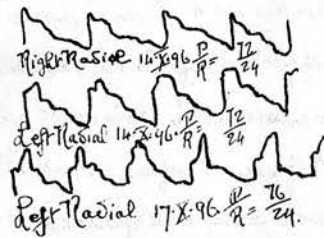 Right Radial 14·X·96 P/R = 72/24
Left Radial 14·X·96· P/R = 72/24
Left Radial 17·X·96. P/R = 76/24.